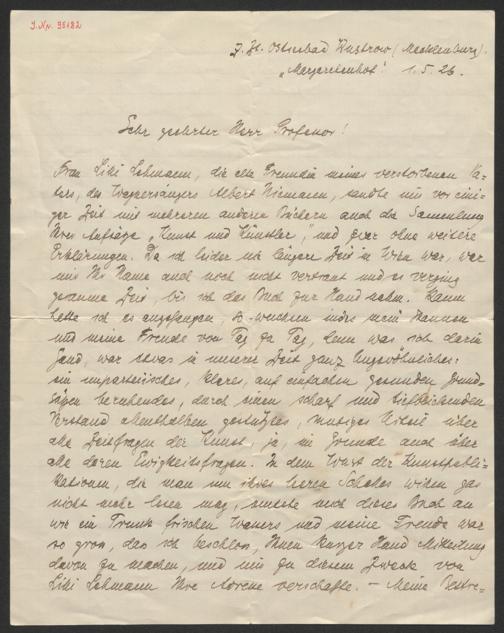 J.Nr. 95182
z. Zt. Ostseebad Wustrow (Mecklenburg).
„Margaretenhof“ 1.5.26.
Sehr geehrter Herr Professor!
Frau Lilli Lehmann, die alte Freundin meines verstorbenen Va-
ters, des Wagnersängers Albert Niemann, sandte mir vor eini-
ger Zeit mit mehreren anderen Büchern auch die Sammlung
Ihrer Aufsätze „Kunst und Künstler“, und zwar ohne weitere
Erklärungen. Da ich leider nie längere Zeit in Wien war, war
mir Ihr Name auch noch nicht vertraut und es verging
geraume Zeit, bis ich das Buch zur Hand nahm. Kaum
hatte ich es angefangen, so wuchsen indes mein Staunen
und meine Freude von Tag zu Tag, denn was ich darin
fand, war etwas in unserer Zeit ganz Ungewöhnliches:
ein unparteiisches, klares, auf einfachen gesunden Grund-
sätzen beruhendes, durch einen scharf und tiefblickenden
Verstand allenthalben gestütztes, mutiges Urteil über
alle Zeitfragen der Kunst, ja, im Grunde auch über
alle deren Ewigkeitsfragen. In dem Wust der Kunstpubli-
kationen, die man um ihres leeren Schalles willen gar
nicht mehr lesen mag, mutete mich dieses Buch an
wie ein Trunk frischen Wassers und meine Freude war
so gross, dass ich beschloss, Ihnen kurzer Hand Mitteilung
davon zu machen, und mir zu diesem Zweck von
Lilli Lehmann Ihre Adresse verschaffte. – Meine Bestre-